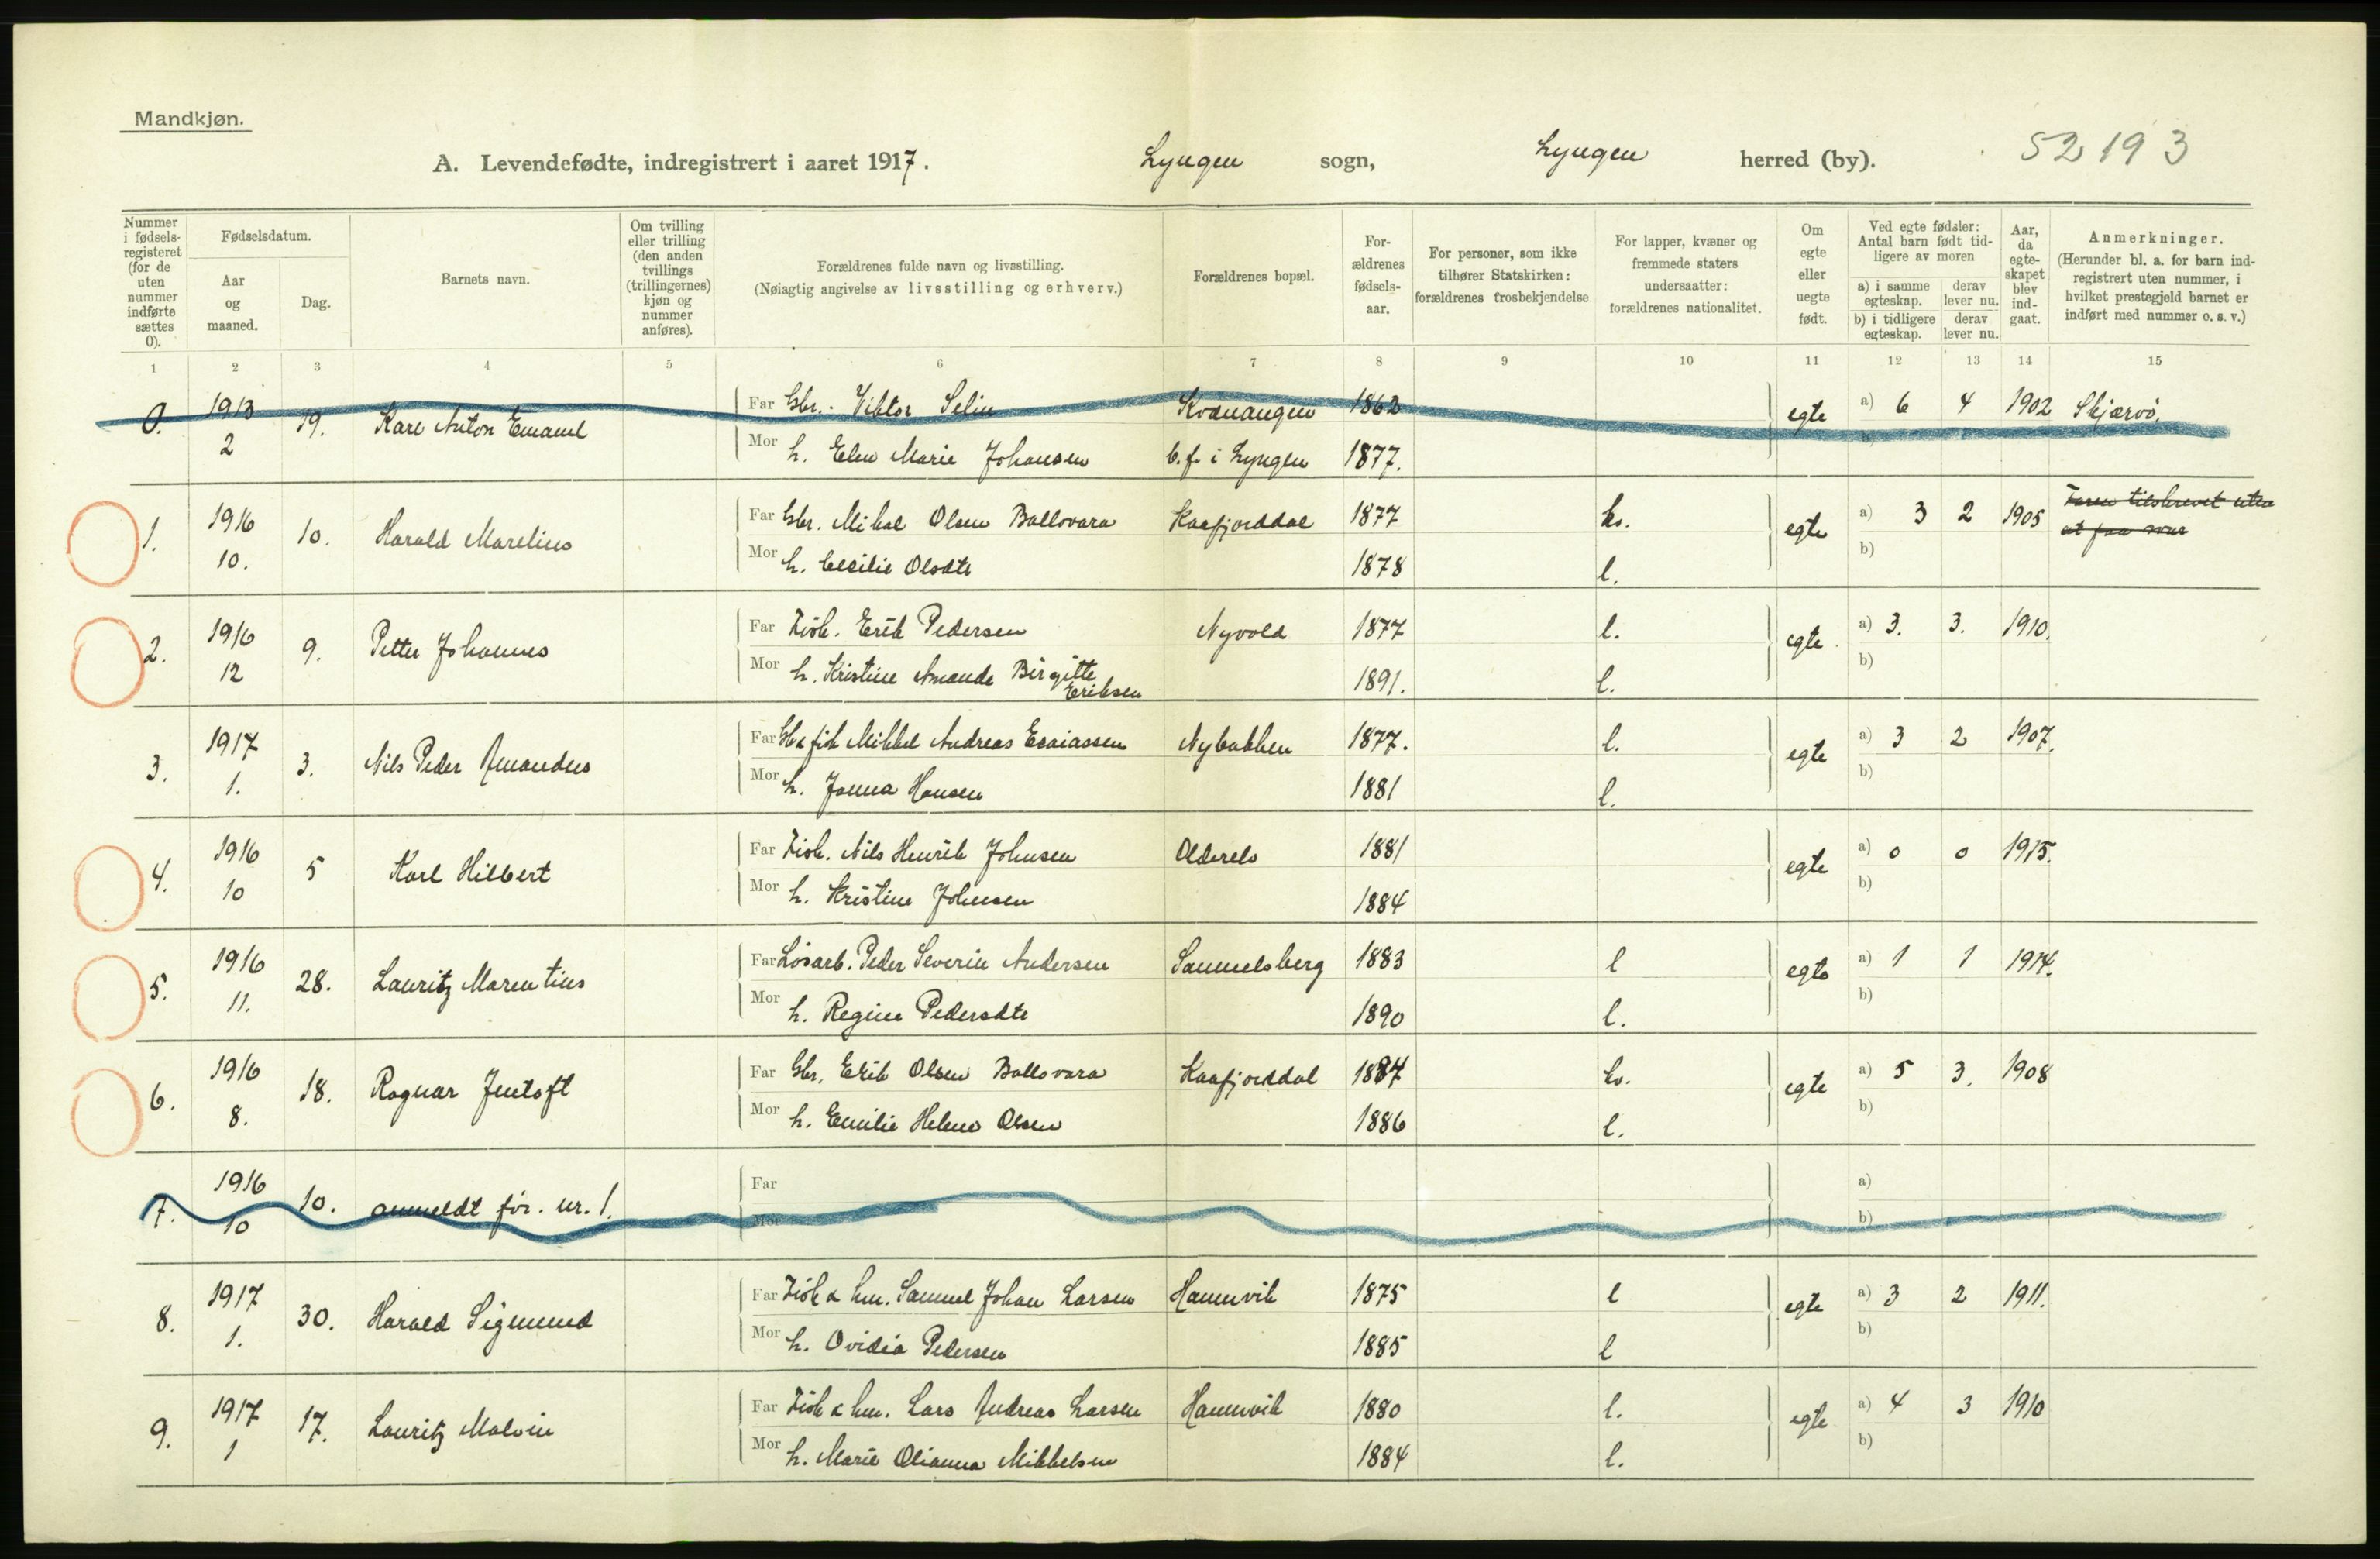 Mandkjøn.
A. Levendefødte, indregistrert i aaret 1917. Lyngen sogn, Lyngen herred (by). 52 19 3
Nummer i fødsels-registeret (for de uten nummer indførte sættes 0).
Fødselsdatum.
Aar og maaned.
Dag.
Barnets navn.
Om tvilling eller trilling (den anden tvillings (trillingernes) kjøn og nummer anføres).
Forældrenes fulde navn og livsstilling.
(Nøiagtig angivelse av livsstilling og erhverv.)
Forældrenes bopæl.
For-ældrenes fødsels-aar.
For personer, som ikke tilhører Statskirken: forældrenes trosbekjendelse
For lapper, kvæner og fremmede staters undersaatter: forældrenes nationalitet.
Om egte eller uegte født.
Ved egte fødsler: Antal barn født tid-ligere av moren
a) i samme egteskap. derav lever nu.
b) i tidligere egteskap. derav lever nu.
Aar, da egte-skapet blev ind-gaat.
Anmerkninger.
(Herunder bl. a. for barn ind-registrert uten nummer, i hvilket prestegjeld barnet er indført med nummer o. s. v.)
1 2 3 4 5 6 7 8 9 10 11 12 13 14 15
0. 1913 19. Karl Anton Emanuel Far Gbr. Viktor Selin Kvænangen 1862 egte a) 6 4 1902 Skjærvø.
2 Mor h. Elen Marie Johansen b.f. i Lyngen 1877. b)
1. 1916 10. Harald Marelius Far Gbr. Mikal Olsen Ballovara Kaafjorddal 1877 kv. egte a) 3 2 1905 Faren tilskrevet uten
at faa svar
10. Mor h. Cecilie Olsdtr 1878 l. b)
2. 1916 9. Petter Johannes Far Fisk. Erik Pedersen Nyvold 1877 l. egte a) 3. 3. 1910.
12 Mor h. Kristine Amande Birgitte Eriksen 1891. l. b)
3. 1917 3. Nils Peder Amandus Far Gbr & fisk Mikkel Andreas Esaiassen Nybakken 1877. l. egte a) 3 2 1907.
1. Mor h. Janna Hansen 1881 l. b)
4. 1916 5 Karl Hilbert Far Fisk. Nils Henrik Johnsen 1881 egte a) 0 0 1915.
10 Mor h. Kristine Johnsen 1884 b)
5. 1916 28. Lauritz Marentius Far Løsarb. Peder Severin Andersen Samuelsberg 1883 l egte a) 1 1 1914.
11. Mor h. Regine Pedersdtr 1890 l. b)
6. 1916 18. Ragnar Jentoft Far Gbr. Erik Olsen Ballovara Kaafjorddal 1884 kv. egte a) 5 3. 1908
8. Mor h. Emilie Helene Olsen 1886 l. b)
7. 1916 10. anmeldt før. nr. 1. Far a)
10 Mor b)
8. 1917 30. Harald Sigmund Far Fisk & hm. Samuel Johan Larsen Hamnvik 1875 l egte a) 3 2 1911.
1. Mor h. Ovidia Pedersen 1885 l b)
9. 1917 17. Lauritz Malvin Far Fisk & hm. Lars Andreas Larsen Hamnvik 1880 l. egte a) 4 3 1910
1 Mor h. Marie Olianna Mikkelsen 1884 l. b)